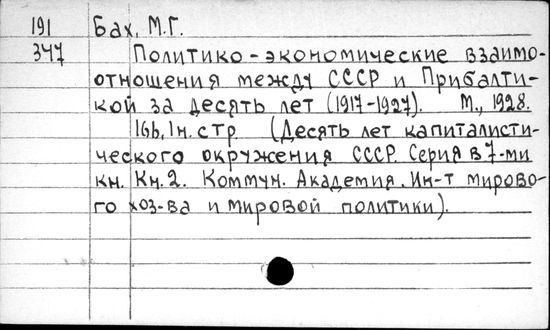 191 Бах, М.Г.
347 Политико-экономические взаимо-
отношения между СССР и Прибалти-
кой за десять лет (1917-1927). М., 1928.
166, 1н. стр. (Десять лет капиталисти-
ческого окружения СССР. Серия в 7-ми
кн. Кн. 2. Коммун. Академия. Ин-т мирово-
го хоз-ва и мировой политики).